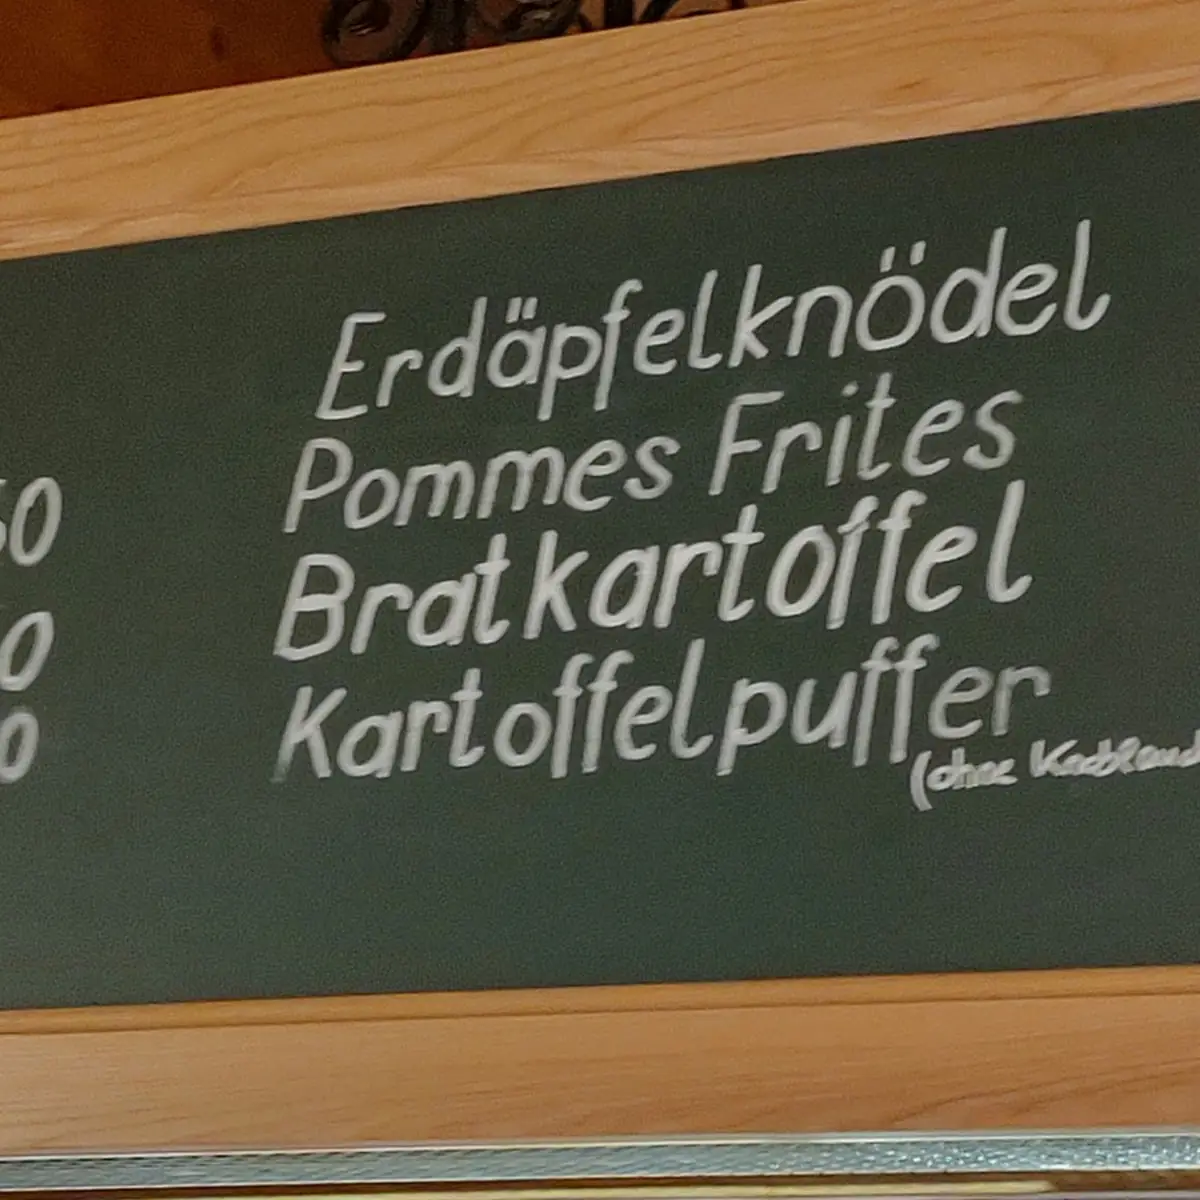 Erdäpfelknödel
50
Pommes Frites
Bratkartoffel
0
Kartoffelpuffer
0
(ohne